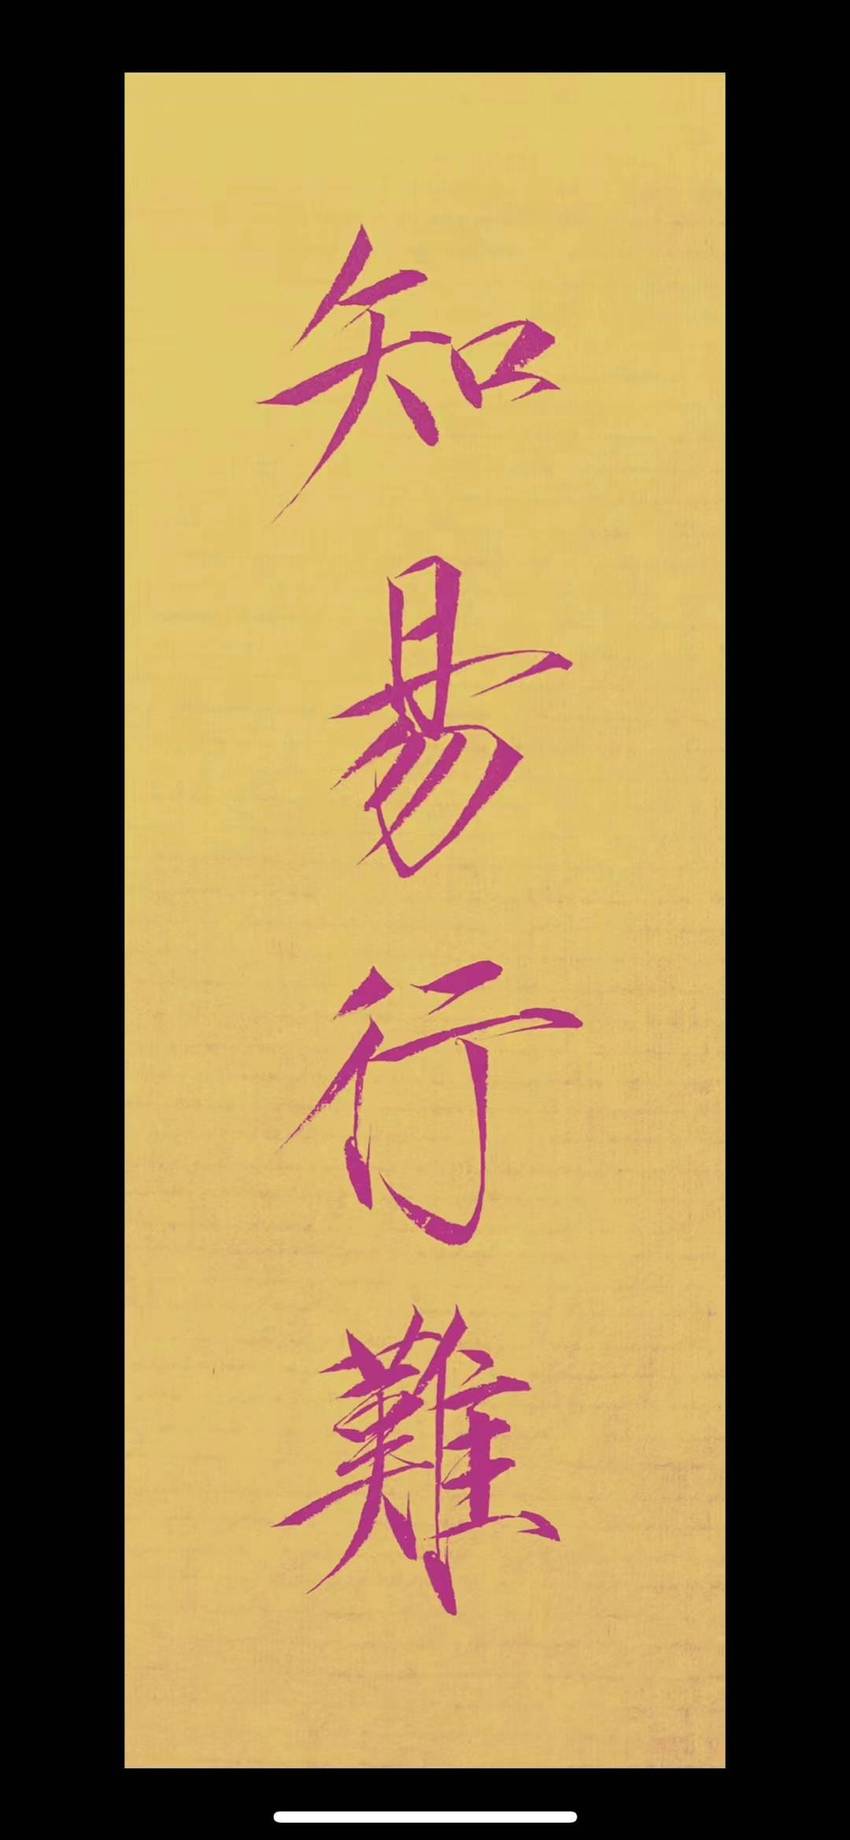 知易行難